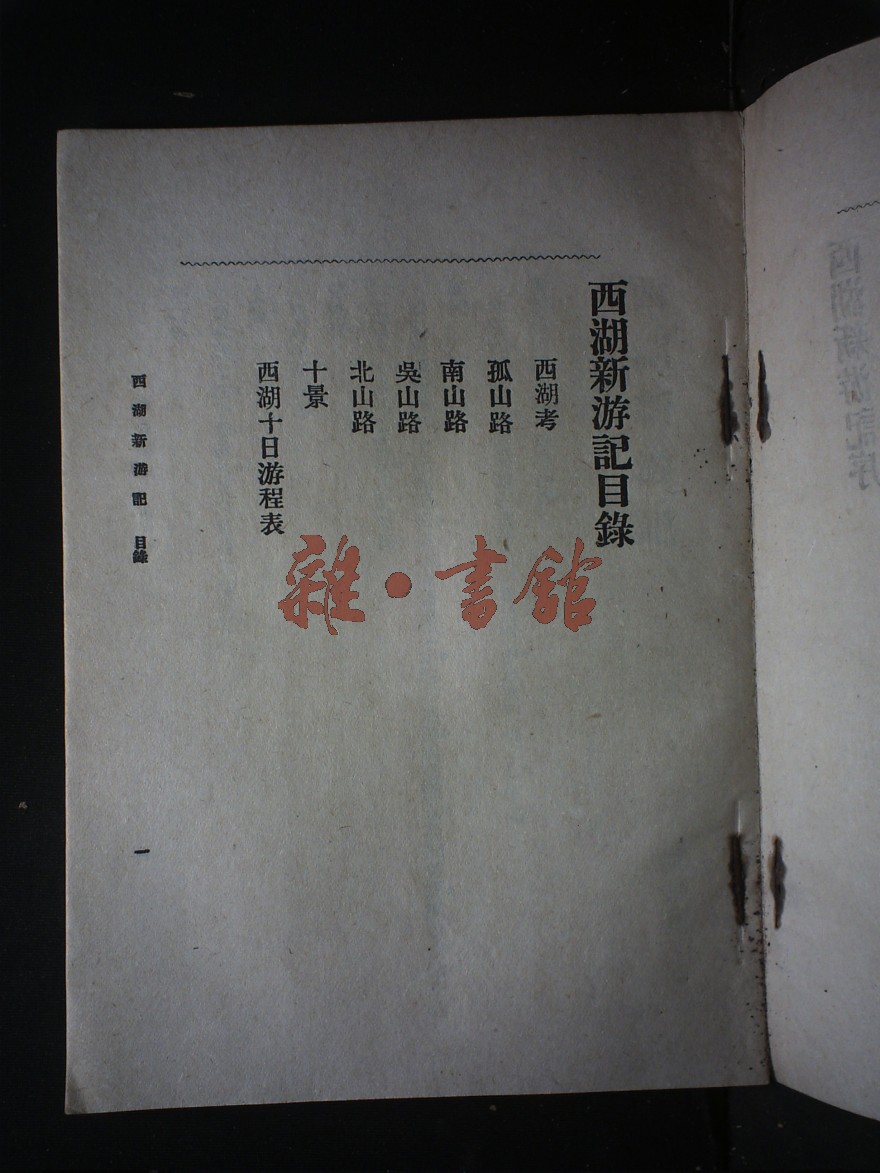 西湖新游記目錄
西湖考
孤山路
南山路
吳山路
北山路
十景
西湖十日游程表
西湖新游記 目錄
一
雜·書館
西湖新游記序